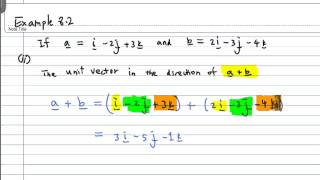 Example 8.2
Note Title
If a = i - 2j + 3k and b = 2i - 3j - 4k
(ii)
The unit vector in the direction of a + b
a + b = (i - 2j + 3k) + (2i - 3j - 4k)
= 3i - 5j - 1k